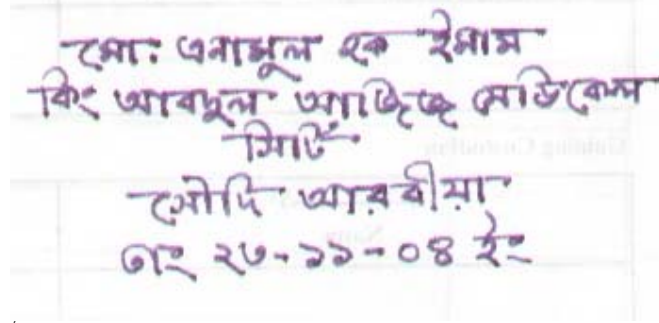 মো: এনামুল হক ইমাম
কিং আবদুল আজিজ মেডিকেল
সিটি
সৌদি আরবীয়া
তাং ২৩-১১-০৪ ইং